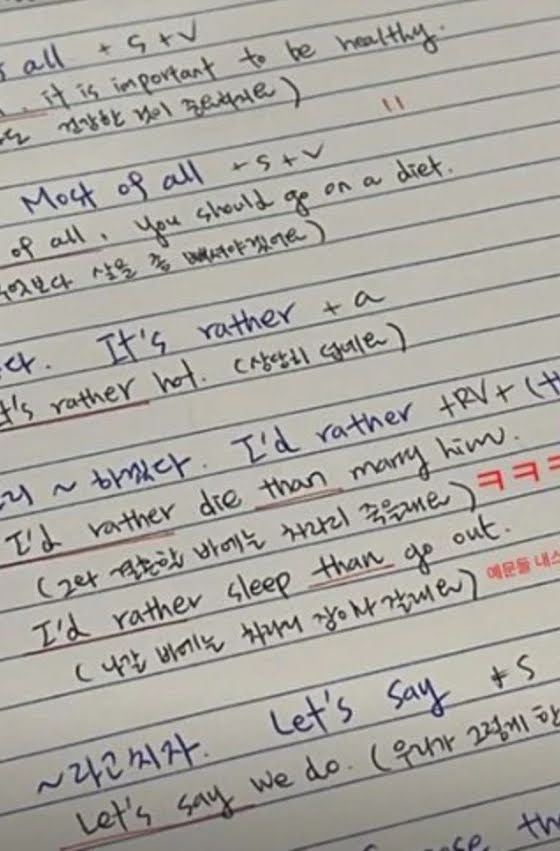 all + S + V
it is important to be healthy.
건강한 것이 중요하지요)
Most of all + S + V
of all, you should go on a diet.
무엇보다 살을 좀 빼셔야겠어요)
It's rather + a
It's rather hot. (상당히 덥네요)
~ 하겠다. I'd rather +RV+ (th
I'd rather die than marry him.
(그와 결혼할 바에는 차라리 죽을래요) ㅋㅋㅋ
I'd rather sleep than go out.
(나갈 바에는 차라리 잠이나 잘래요) 예문들 내스
~라고 치자. Let's say + S
Let's say we do. (우리가 그렇게 한